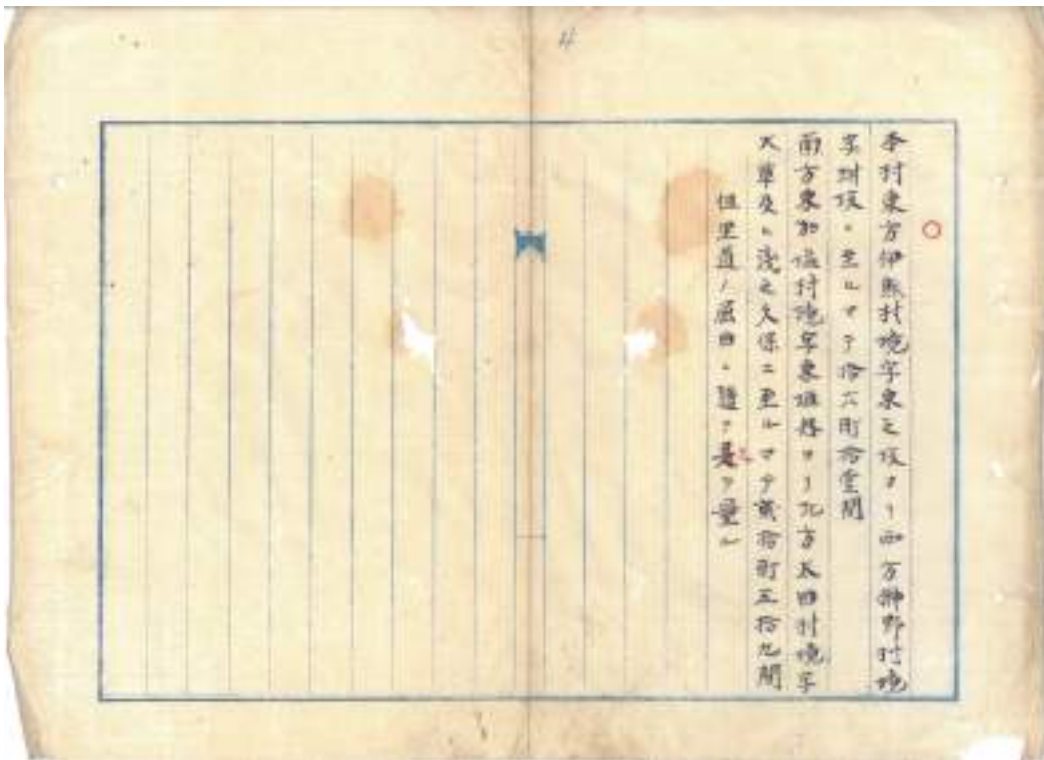 4
本村東方伊興村境字東之坂ヨリ西方榊野村境
字附坂ニ至ルマテ拾六町拾壹間
南方東加塩村境字東堀越ヨリ北方太田村境字
大草及ヒ浅之久保ニ至ルマテ貳拾町五拾九間
但里道ノ屈曲ニ随テ是ヲ量ル